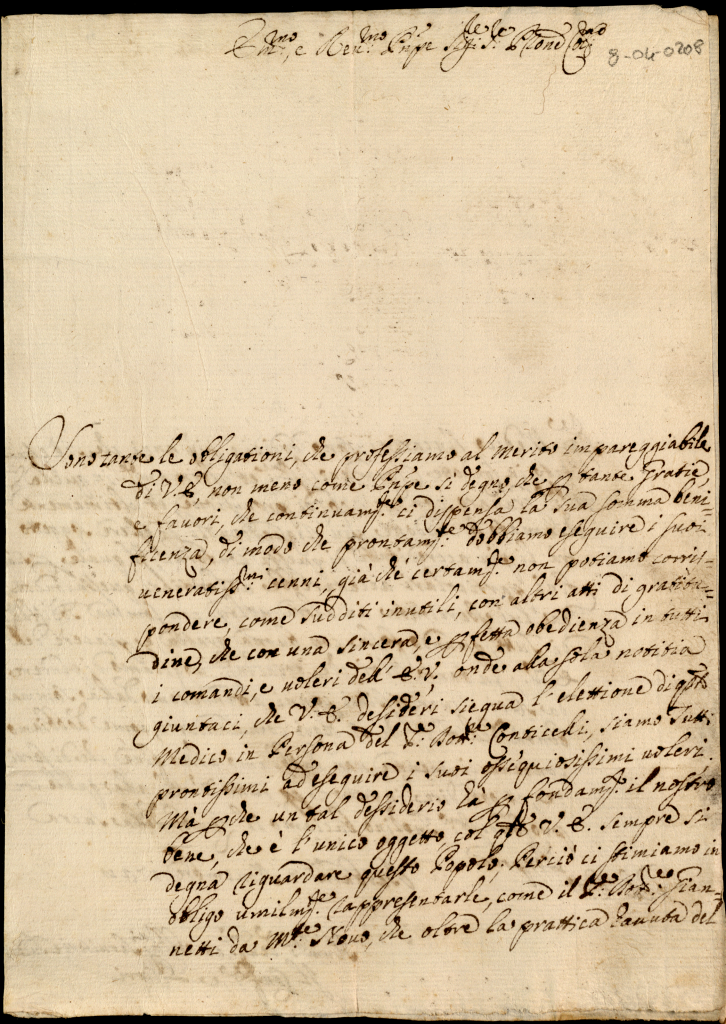 Em.mo, e Rev.mo Pnpe Sig.re Sig.re P̃rone Col.mo
8-04-0208
Sono tante le obligationi, che professiamo al merito impareggiabile
di V.E., non meno come Pnpe si degno, che p tante Gratie,
e favori, che continuam.te ci dispensa la sua somma beni-
ficenza, di modo che prontam.te dobbiamo eseguire i suoi
veneratiss.mi cenni, già che certam.te non potiamo corris-
pondere, come sudditi inutili, con altri atti di gratitu-
dine, che con una sincera, e pfetta obedienza in tutti
i comandi, e voleri dell' E.V. onde alla sola notitia
giuntaci, che V.E. desideri siegua l'elettione di q.sto
Medico in Persona del S.r Dott.re Conticelli, siamo tutti
prontissimi ad eseguire i suoi ossequiosissimi voleri.
Mà pche un tal desiderio hà p fondam.to il nostro
bene, che è l'unico oggetto, col q.le V.E. sempre si
degna riguardare questo Popolo. Perciò ci stimiamo in
obligo umilm.te rappresentarle, come il S.r Dott.re Gian-
netti da M.te Novo, che oltre la prattica havuta del